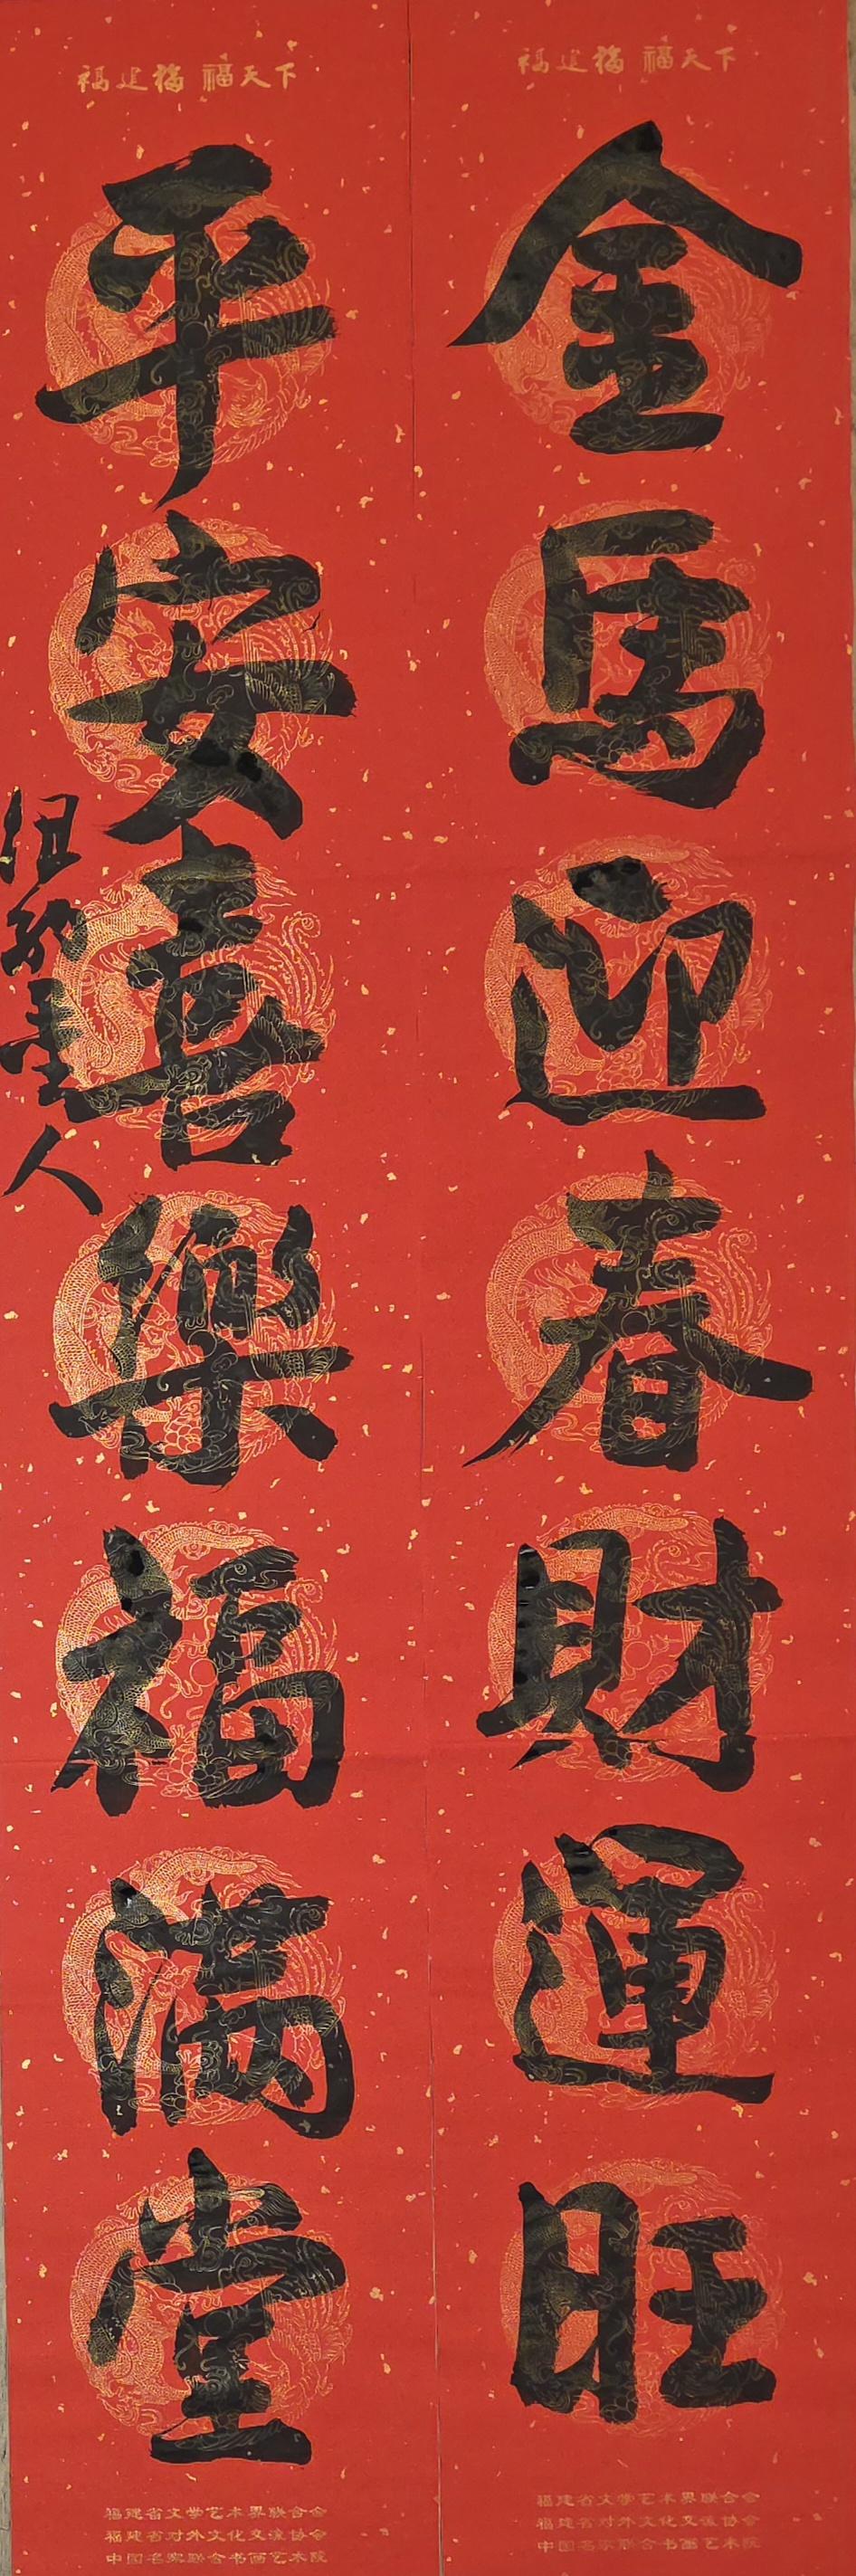 福建福 福天下
金馬迎春財運旺
福建省文学艺术界联合会
福建省对外文化交流协会
中国名家联合书画艺术院
福建福 福天下
平安喜樂福滿堂
墨人
福建省文学艺术界联合会
福建省对外文化交流协会
中国名家联合书画艺术院